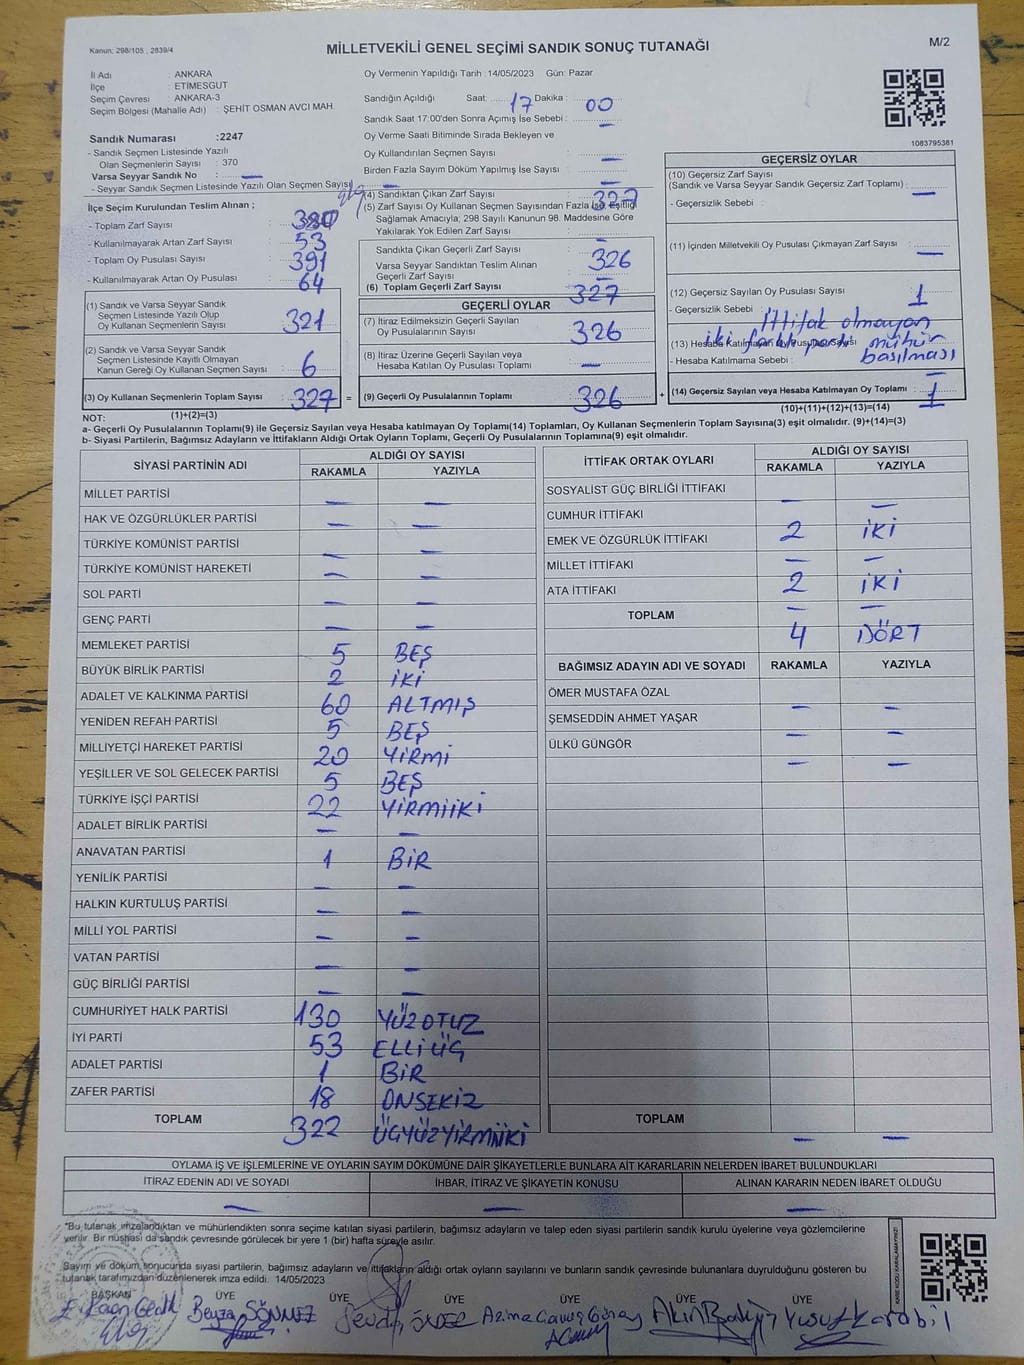 Kanun: 298/105 , 2839/4
MİLLETVEKİLİ GENEL SEÇİMİ SANDIK SONUÇ TUTANAĞI
M/2
İl Adı : ANKARA
İlçe : ETİMESGUT
Seçim Çevresi : ANKARA-3
Seçim Bölgesi (Mahalle Adı) : ŞEHİT OSMAN AVCI MAH.
Sandık Numarası :2247
- Sandık Seçmen Listesinde Yazılı
Olan Seçmenlerin Sayısı : 370
Varsa Seyyar Sandık No : —
- Seyyar Sandık Seçmen Listesinde Yazılı Olan Seçmen Sayısı : —
Oy Vermenin Yapıldığı Tarih :14/05/2023 Gün: Pazar
Sandığın Açıldığı Saat: 17 Dakika : 00
Sandık Saat 17:00'den Sonra Açımış İse Sebebi : —
Oy Verme Saati Bitiminde Sırada Bekleyen ve
Oy Kullandırılan Seçmen Sayısı : —
Birden Fazla Sayım Döküm Yapılmış İse Sayısı : —
1083795381
İlçe Seçim Kurulundan Teslim Alınan ;
- Toplam Zarf Sayısı : 380
- Kullanılmayarak Artan Zarf Sayısı : 53
- Toplam Oy Pusulası Sayısı : 391
- Kullanılmayarak Artan Oy Pusulası : 64
(1) Sandık ve Varsa Seyyar Sandık
Seçmen Listesinde Yazılı Olup
Oy Kullanan Seçmenlerin Sayısı : 321
(2) Sandık ve Varsa Seyyar Sandık
Seçmen Listesinde Kayıtlı Olmayan
Kanun Gereği Oy Kullanan Seçmen Sayısı : 6
(3) Oy Kullanan Seçmenlerin Toplam Sayısı : 327 =
(4) Sandıktan Çıkan Zarf Sayısı : 327
(5) Zarf Sayısı Oy Kullanan Seçmen Sayısından Fazla İse, Eşitliği
Sağlamak Amacıyla; 298 Sayılı Kanunun 98. Maddesine Göre
Yakılarak Yok Edilen Zarf Sayısı : —
Sandıkta Çıkan Geçerli Zarf Sayısı : 326
Varsa Seyyar Sandıktan Teslim Alınan
Geçerli Zarf Sayısı : —
(6) Toplam Geçerli Zarf Sayısı : 327
GEÇERLİ OYLAR
(7) İtiraz Edilmeksizin Geçerli Sayılan
Oy Pusulalarının Sayısı : 326
(8) İtiraz Üzerine Geçerli Sayılan veya
Hesaba Katılan Oy Pusulası Toplamı : —
(9) Geçerli Oy Pusulalarının Toplamı : 326 +
GEÇERSİZ OYLAR
(10) Geçersiz Zarf Sayısı
(Sandık ve Varsa Seyyar Sandık Geçersiz Zarf Toplamı) : —
- Geçersizlik Sebebi :
(11) İçinden Milletvekili Oy Pusulası Çıkmayan Zarf Sayısı : —
(12) Geçersiz Sayılan Oy Pusulası Sayısı : 1
- Geçersizlik Sebebi : İttifak olmayan
iki farklı parti mühür
basılması
(13) Hesaba Katılmayan Oy Pusulası Sayısı :
- Hesaba Katılmama Sebebi : —
(14) Geçersiz Sayılan veya Hesaba Katılmayan Oy Toplamı : 1
NOT: (1)+(2)=(3)
(10)+(11)+(12)+(13)=(14)
a- Geçerli Oy Pusulaları Toplamı(9) ile Geçersiz Sayılan veya Hesaba katılmayan Oy Toplamı(14) Toplamları, Oy Kullanan Seçmenlerin Toplam Sayısına(3) eşit olmalıdır. (9)+(14)=(3)
b- Siyasi Partilerin, Bağımsız Adayların ve İttifakların Aldığı Ortak Oyların Toplamı, Geçerli Oy Pusulalarının Toplamına(9) eşit olmalıdır.
SİYASİ PARTİNİN ADI
ALDIĞI OY SAYISI
RAKAMLA YAZIYLA
MİLLET PARTİSİ — —
HAK VE ÖZGÜRLÜKLER PARTİSİ — —
TÜRKİYE KOMÜNİST PARTİSİ — —
TÜRKİYE KOMÜNİST HAREKETİ — —
SOL PARTİ — —
GENÇ PARTİ — —
MEMLEKET PARTİSİ 5 BEŞ
BÜYÜK BİRLİK PARTİSİ 2 İKİ
ADALET VE KALKINMA PARTİSİ 60 ALTMIŞ
YENİDEN REFAH PARTİSİ 5 BEŞ
MİLLİYETÇİ HAREKET PARTİSİ 20 YİRMİ
YEŞİLLER VE SOL GELECEK PARTİSİ 5 BEŞ
TÜRKİYE İŞÇİ PARTİSİ 22 YİRMİİKİ
ADALET BİRLİK PARTİSİ — —
ANAVATAN PARTİSİ 1 BİR
YENİLİK PARTİSİ — —
HALKIN KURTULUŞ PARTİSİ — —
MİLLİ YOL PARTİSİ — —
VATAN PARTİSİ — —
GÜÇ BİRLİĞİ PARTİSİ — —
CUMHURİYET HALK PARTİSİ 130 YÜZOTUZ
İYİ PARTİ 53 ELLİÜÇ
ADALET PARTİSİ 1 BİR
ZAFER PARTİSİ 18 ONSEKİZ
TOPLAM 322 ÜÇYÜZYİRMİİKİ
İTTİFAK ORTAK OYLARI
ALDIĞI OY SAYISI
RAKAMLA YAZIYLA
SOSYALİST GÜÇ BİRLİĞİ İTTİFAKI — —
CUMHUR İTTİFAKI 2 İKİ
EMEK VE ÖZGÜRLÜK İTTİFAKI — —
MİLLET İTTİFAKI 2 İKİ
ATA İTTİFAKI — —
TOPLAM 4 DÖRT
BAĞIMSIZ ADAYIN ADI VE SOYADI RAKAMLA YAZIYLA
ÖMER MUSTAFA ÖZAL — —
ŞEMSEDDİN AHMET YAŞAR — —
ÜLKÜ GÜNGÖR — —
TOPLAM — —
OYLAMA İŞ VE İŞLEMLERİNE VE OYLARIN SAYIM DÖKÜMÜNE DAİR ŞİKAYETLERLE BUNLARA AİT KARARLARIN NELERDEN İBARET BULUNDUKLARI
İTİRAZ EDENİN ADI VE SOYADI İHBAR, İTİRAZ VE ŞİKAYETİN KONUSU ALINAN KARARIN NEDEN İBARET OLDUĞU
— — —
"Bu tutanak imzalandıktan ve mühürlendikten sonra seçime katılan siyasi partilerin, bağımsız adayların ve talep eden siyasi partilerin sandık kurulu üyelerine veya gözlemcilerine
verilir. Bir nüshası da sandık çevresinde görülecek bir yere 1 (bir) hafta süreyle asılır.
Sayım ve döküm sonucunda siyasi partilerin, bağımsız adayların ve ittifakların aldığı ortak oyların sayılarını ve bunların sandık çevresinde bulunanlara duyrulduğunu gösteren bu
tutanak tarafımızdan düzenlenerek imza edildi. 14/05/2023
BAŞKAN ÜYE ÜYE ÜYE ÜYE ÜYE
Beyza SÖNMEZ Yusuf Karabil